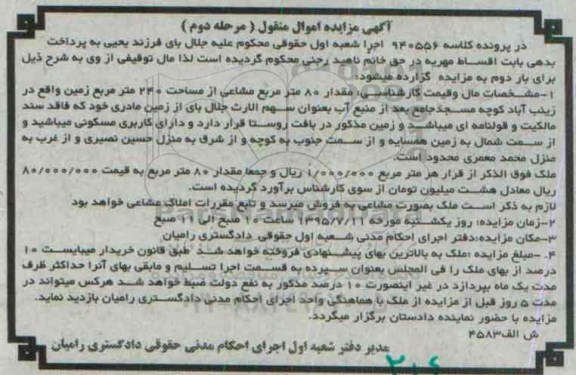 آگهی مزایده اموال منقول ( مرحله دوم )
در پرونده کلاسه ۹۴۰۵۵۶ اجرا شعبه اول حقوقی محکوم علیه جلال بای فرزند یحیی به پرداخت
بدهی بابت اقساط مهریه در حق خانم ناهید رجنی محکوم گردیده است لذا مال توقیفی از وی به شرح ذیل
برای بار دوم به مزایده گزارده میشود:
۱-مشخصات مال وقیمت کارشناسی: مقدار ۸۰ متر مربع مشاعی از مساحت ۲۴۰ متر مربع زمین واقع در
زینب آباد کوچه مسجدجامع بعد از منبع آب بعنوان سهم الارث جلال بای از زمین مادری خود که فاقد سند
مالکیت و قولنامه ای میباشد و زمین مذکور در بافت روستا قرار دارد و دارای کاربری مسکونی میباشید و
از سمت شمال به زمین همسایه و از سمت جنوب به کوچه و از شرق به منزل حسین نصیری و از غرب به
منزل محمد معمری محدود است.
ملک فوق الذکر از قرار هر متر مربع ۱/۰۰۰/۰۰۰ ریال و جمعا مقدار ۸۰ متر مربع به قیمت ۸۰/۰۰۰/۰۰۰
ریال معادل هشت میلیون تومان از سوی کارشناس برآورد گردیده است.
لازم به ذکر است ملک بصورت مشاعی به فروش میرسد و تابع مقررات املاک مشاعی خواهد بود
۲-زمان مزایده: روز یکشنبه مورخه ۱۳۹۵/۷/۱۱ ساعت ۱۰ صبح الی ۱۱ صبح
۳-مکان مزایده:دفتر اجرای احکام مدنی شعبه اول حقوقی دادگستری رامیان
۴-مبلغ مزایده :ملک به بالاترین بهای پیشنهادی فروخته خواهد شد طبق قانون خریدار میبایست ۱۰
درصد از بهای ملک را فی المجلس بعنوان سپرده به قسمت اجرا تسلیم و مابقی بهای آنرا حداکثر ظرف
مدت یک ماه بپردازد در غیر اینصورت ۱۰ درصد مذکور به نفع دولت ضبط خواهد شد هرکس میتواند در
مدت ۵ روز قبل از مزایده از ملک با هماهنگی واحد اجرای احکام مدنی دادگستری رامیان بازدید نماید.
مزایده با حضور نماینده دادستان برگزار میگردد.
ش الف۴۵۸۳
مدیر دفتر شعبه اول اجرای احکام مدنی حقوقی دادگستری رامیان